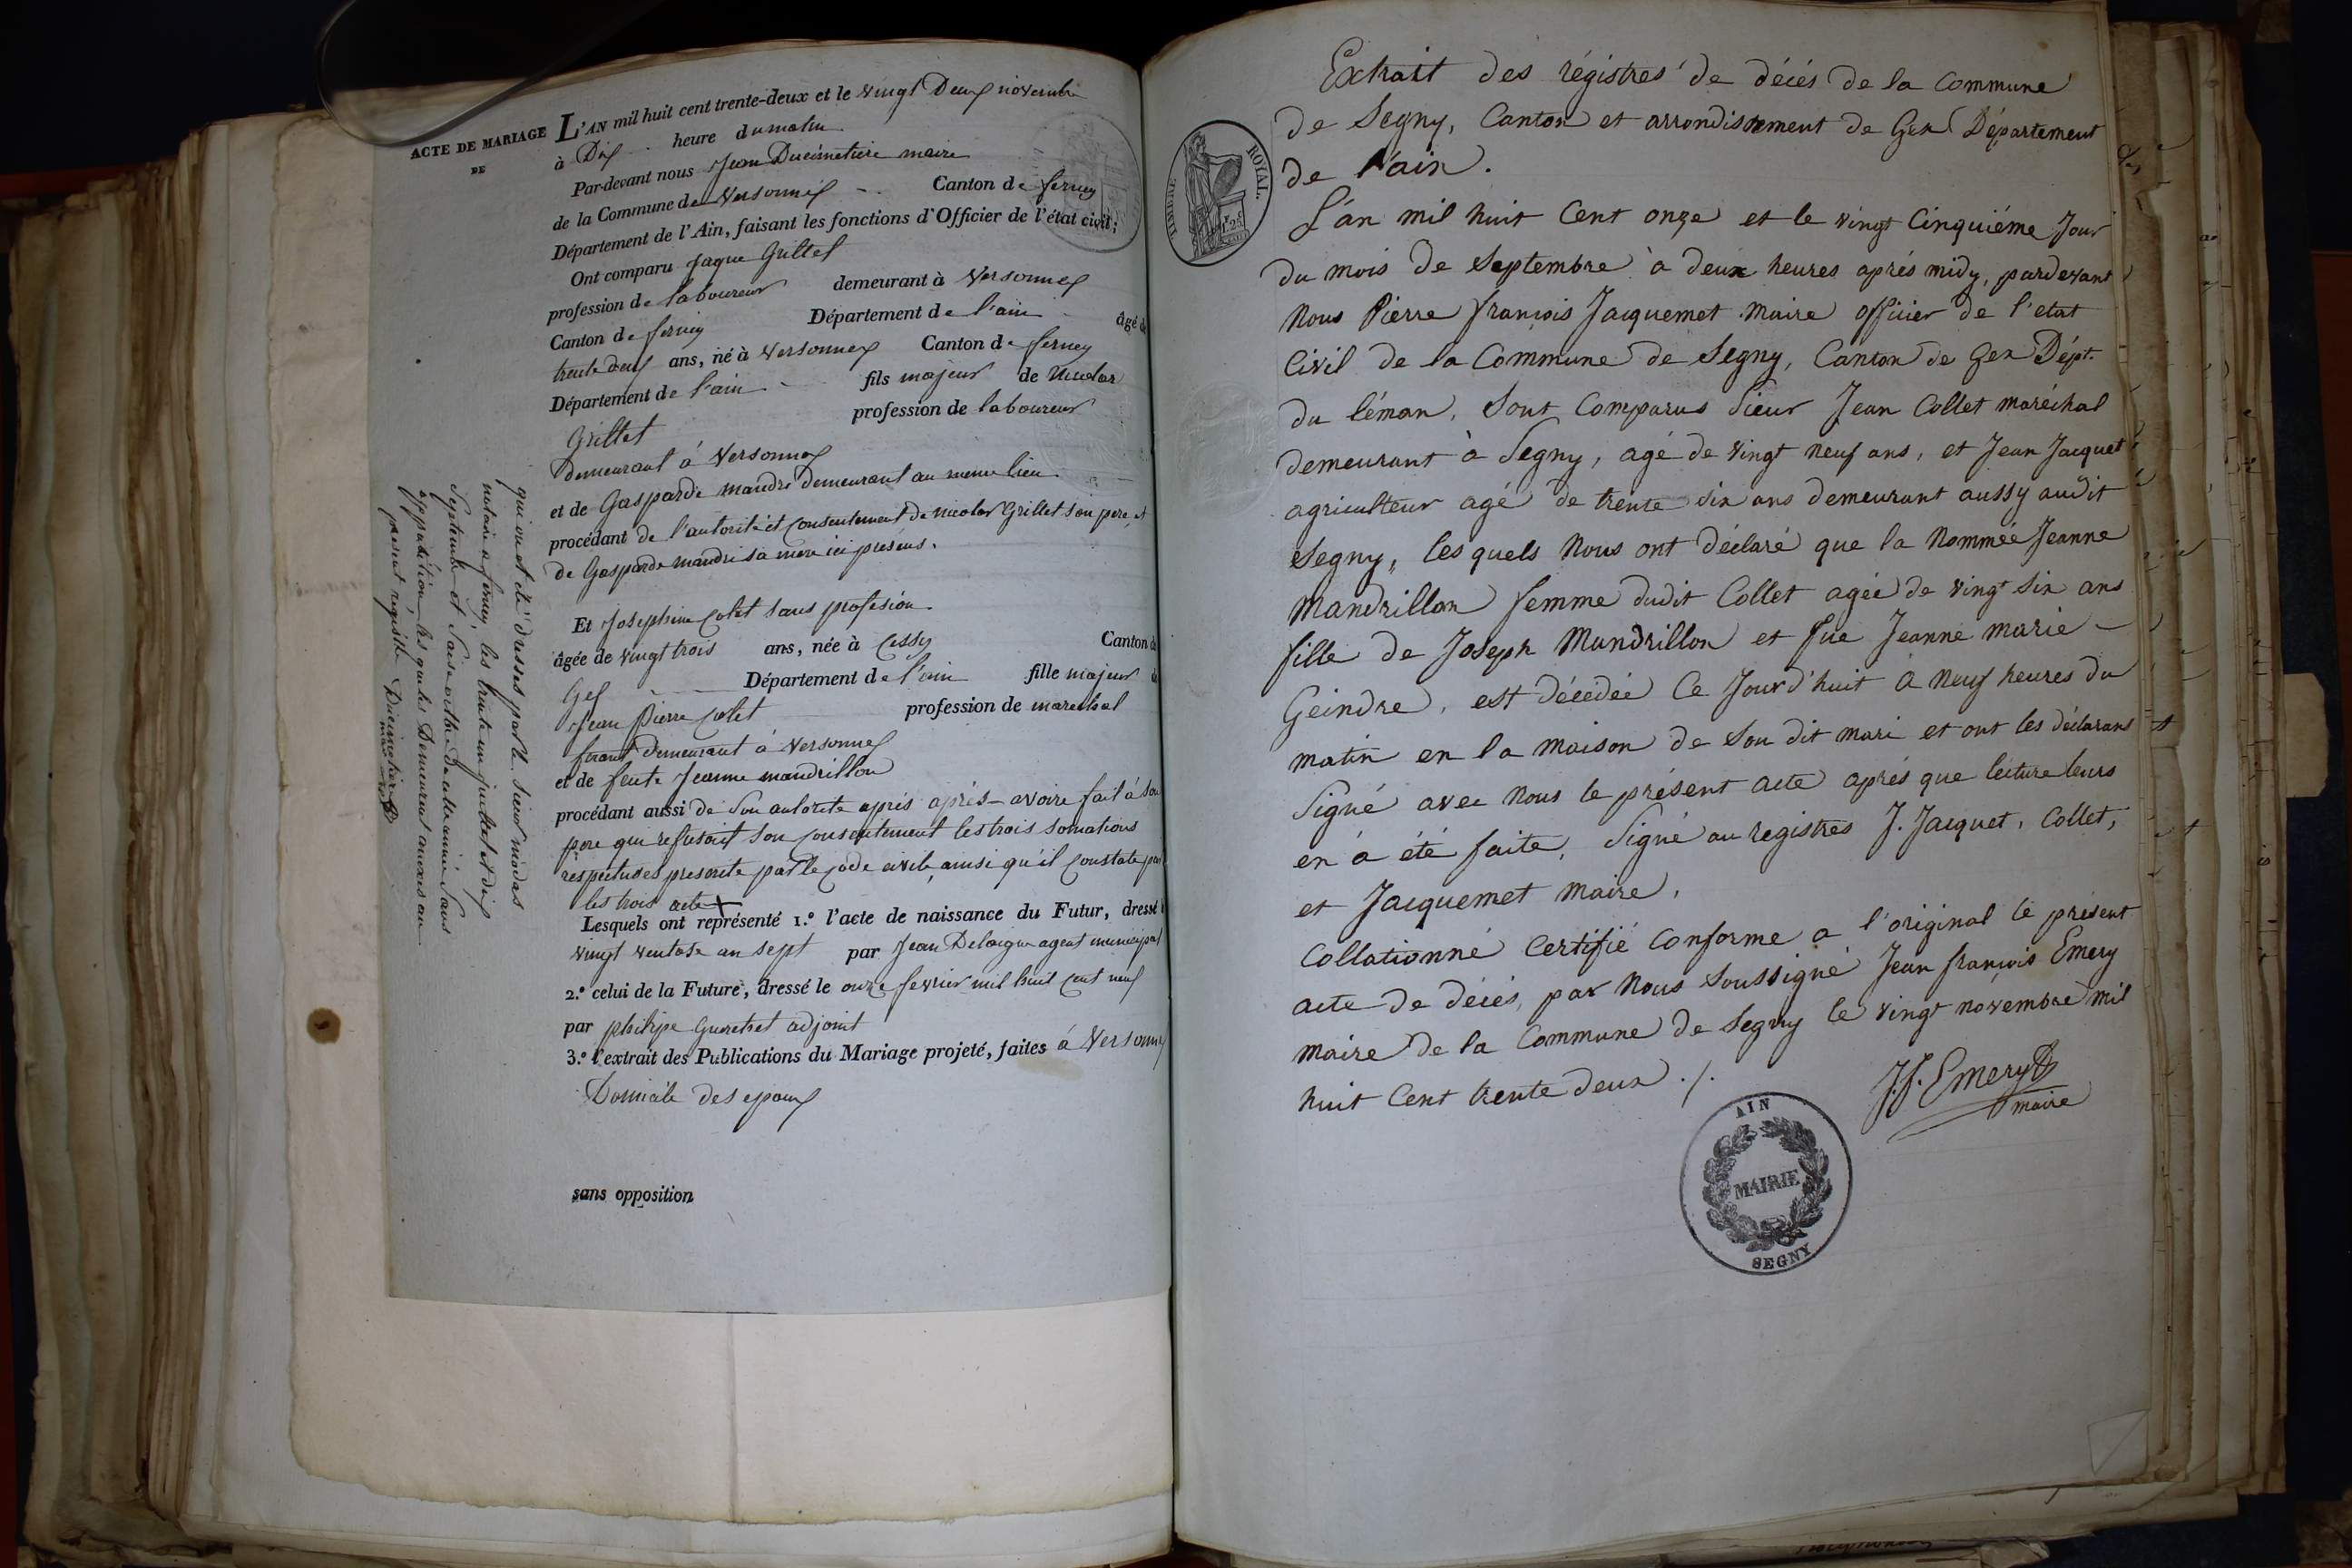 ACTE DE MARIAGE
DE
L'AN mil huit cent trente-deux et le vingt Deux novembre
à Dix heure du matin
Par-devant nous Jean Ducimetiere maire
de la Commune de Versonnex Canton de ferney
Département de l'Ain, faisant les fonctions d'Officier de l'état civil;
Ont comparu Jaque Grillet
profession de laboureur demeurant à Versonnex
Canton de ferney Département de l'ain âgé de
trente deux ans, né à Versonnex Canton de ferney
Département de l'ain fils majeur de Nicolas
Grillet profession de laboureur
demeurant à Versonnex
et de Gasparde mandri demeurant au meme lieu
procédant de l'autorité et consentement de nicolas Grillet son pere et
de Gasparde mandri sa mere ici présens.
Et Josephine Colet sans profesion
âgée de vingt trois ans, née à Cessy Canton de
Gex Département de l'ain fille majeur de
Jean Pierre Colet profession de marechal
ferant demeurant à Versonnex
et de feute Jeanne mandrillon
procédant aussi de son autorite après après avoire fait à son
pere qui refusait son consentement les trois somations
respectudes prescrite par le code civile, ainsi qu'il constate par
les trois acte +
Lesquels ont représenté 1.° l'acte de naissance du Futur, dressé
vingt ventose an sept par Jean Delaigue agent municipal
2.° celui de la Future, dressé le onze fevrier mil huit cent neuf
par philipe Guerchet adjoint
3.° l'extrait des Publications du Mariage projeté, faites à Versonnex
Domicile des epoux
sans opposition
qui on et été dressés par le sieur modas
notaire a ferney les trente un juillet et dix
Septembre et Seise octbre de cette année Sans
opposition, les quels Demeurent anexés au
présent régistre Ducimetiere
maire
Extrait des régistres de décés de la Commune
de Segny, Canton et arrondissement de Gex Département
de l'ain.
TIMBRE ROYAL
L'án mil huit Cent onze et le vingt Cinquiéme Jour
du mois de Septembre à deux heures aprés midy, pardevant
Nous Pierre françois Jacquemet Maire officier de l'etat
Civil de la Commune de Segny, Canton de Gex Dépt.
du léman, Sont Comparus Sieur Jean Collet maréchal
demeurant à Segny, agé de vingt neuf ans, et Jean Jacquet
agriculteur agé de trente six ans demeurant aussy audit
Segny, les quels Nous ont déclaré que la Nommée Jeanne
Mandrillon femme dudit Collet agée de vingt Six ans
fille de Joseph Mandrillon et fue Jeanne marie
Geindre, est décédée Ce Jourd'huit a Neuf heures du
matin en la maison de Son dit mari et ont les déclarans
Signé avec Nous le présent acte aprés que lecture leurs
en á été faite, Signé au registres J. Jacquet, Collet,
et Jacquemet Maire.
Collationné Certifié Conforme a l'original le présent
acte de décés, par Nous Soussigné Jean françois Emery
maire de la Commune de Segny le vingt novembre mil
huit Cent trente deux ./.
J.f. Emery
maire
AIN
MAIRIE
SEGNY